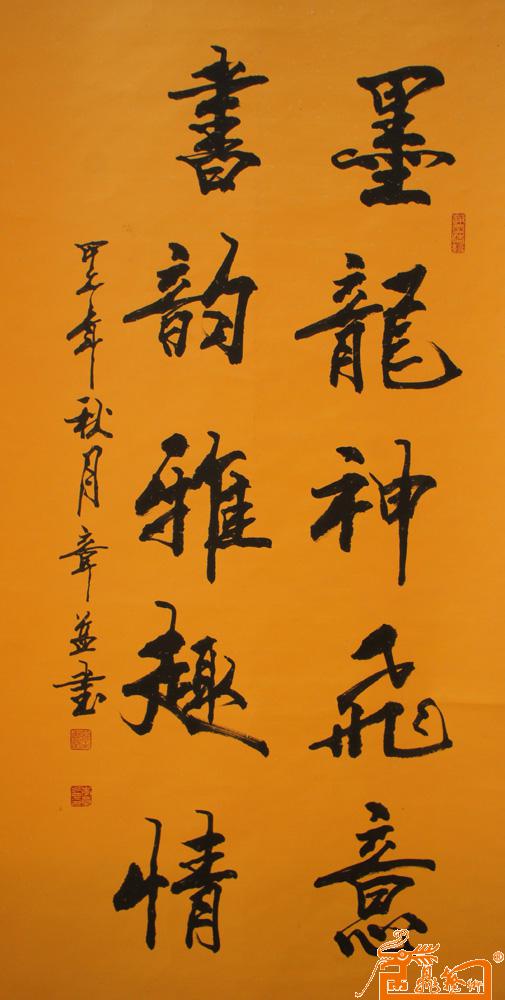 墨龍神飛意
書韵雅趣情
年秋月章益書